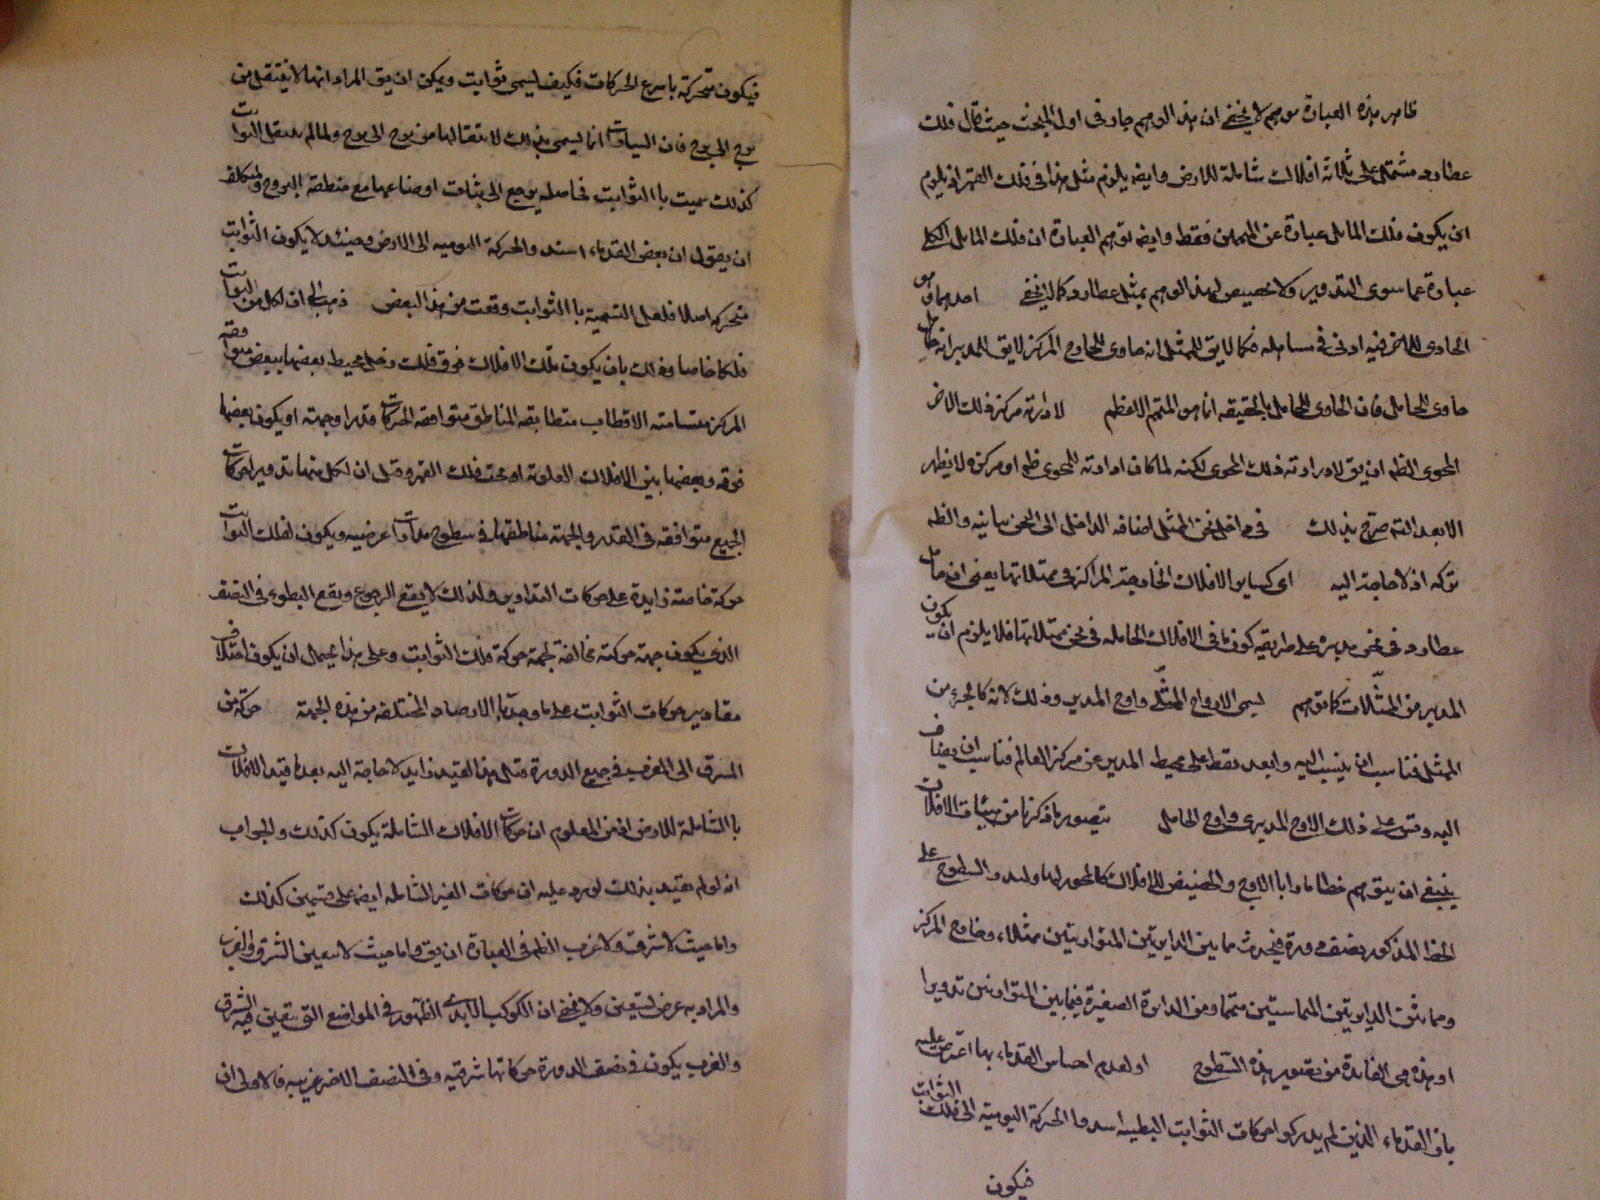 ظاهر هذه العبارة موهم لا يخفى ان هذا الوهم جار في اول المبحث حيث قال فلك
عطارد مشتمل على ثلاثة افلاك شاملة للارض وايضا يلزم مثل هذا في فلك القمر اذ يلزم
ان يكون فلك المايل عبارة عن المتممين فقط وايضا توهم العبارة ان فلك المايل الكلي
عبارة عما سوى التدوير ولا تخصيص لهذا الوهم بمثل عطارد كما لا يخفى احدهما وهو
الحاوى للاخر فيه ادنى مسامله فكما لا يق للممثل انه حاوى للخارج المركز لا يق المدير انه
حاوى الحامل فان الحاوى للحامل بالحقيقه انما هو المتمم الاعظم لادارة مركز فلك الاخر
المحوى الظه ان يق لادارته فلك المحوى لكنه لما كان ادارته للمحوى ظم او مركزه لا يظهر
الا بعد صرح بذلك في داخل ثخن الممثل اضافه الداخل الى الثخن بيانيه والظه
تركه اذ لا حاجة اليه اى كساير الافلاك الخارجة المراكز في ممثلاتها يعنى ان حامل
عطارد في ثخن مديره على طريقه كون باقى الافلاك الحامله في ثخن ممثلاتها فلا يلزم ان يكون
المدير من الممثلات كما توهم ليسمى الاوج الممثلى واوج المدير وذلك لانه كالجزء من
الممثل فناسب ان ينسب اليه وابعد نقطة على محيط المدير عن مركز العالم فناسب ان يضاف
اليه وقس على ذلك الاوج المديرى واوج الحامل يتصور ما ذكرنا من هيئات الافلاك
ينبغى ان يتوهم خطا مارا بالاوج والحضيض للافلاك كالمحور لها وليدر السطوح على
الخط المذكور نصف دورة فيحدث مما بين الدايرتين المتوازيتين ممثلا، وخارج المركز
ومما بين الدايرتين المتماستين متمما ومن الدايرة الصغيرة فيما بين المتوازيتين تدويرا
او هذه هى الفائدة من تصوير هذه السطوح او لعدم احساس القدماء بها اعترض عليه
بان القدماء الذين لم يدركوا حركات الثوابت البطيه اسندوا الحركة اليومية الى فلك الثوابت
فيكون
فيكون متحركة باسرع الحركات فكيف ليسمى ثوابت ويمكن ان يق المراد انها لا ينتقل من
برج الى برج فان السيارات انما ليسمى بذلك لانتقالها من برج الى برج ولما لم ينتقل الثوابت
كذلك سميت باالثوابت فحاصله يرجع الى ثبات اوضاعها مع منطقة البروج وللمتكلف
ان يقول ان بعض القدماء اسند والحركة اليوميه الى الارض وحينئذ لا يكون الثوابت
متحركه اصلا فلعل التسمية باالثوابت وقعت من هذا البعض ذهب الى ان لكل من الثوابت
فلكا خاصا وذلك بان يكون تلك الافلاك فوق فلك زحل محيط بعضها ببعض متوافقه
المركز متسامته الاقطاب متطابقه المناطق متوافقه الحركات قدرا وجهته او يكون بعضها
فوقه وبعضها بين الافلاك العلوية او تحت فلك القمر وقيل ان لكل منها تدويرا حركات
الجميع متوافقه في القدر والجهة مناطقها في سطوح مدارات عرضيه ويكون لفلك الثوابت
حركة خاصته زايدة على حركات التداوير ولذلك لا يقع الرجوع ويقع البطوء في النصف
الذى يكون جهة حركته مخالفة لجهة حركة فلك الثوابت وعلى هذا يحتمل ان يكون اختلاف
مقادير حركات الثوابت على ما وجد بالارصاد المختلفه من هذه الجهة حركة من
المشرق الى المغرب في جميع الدورة قيل هذا القيد زايد لا حاجة اليه بعد ما قيد الافلاك
باالشاملة للارض اذ من المعلوم ان حركات الافلاك الشاملة يكون كذلك والجواب
انه لو لم يقيد بذلك لورد عليه ان حركات الغير الشامله ايضا على قسمين كذلك
واما حيث لا شرق ولا غرب الظه في العبارة ان يق واما حيث لا يتعين الشرق والغرب
والمراد به عرض تسعين ولا يخفى ان الكوكب الابدى الظهور في المواضع التى يتعين فيه الشرق
والغرب يكون في نصف الدورة حركاتها شرقيه وفي النصف الاخر غربيه فالاولى ان